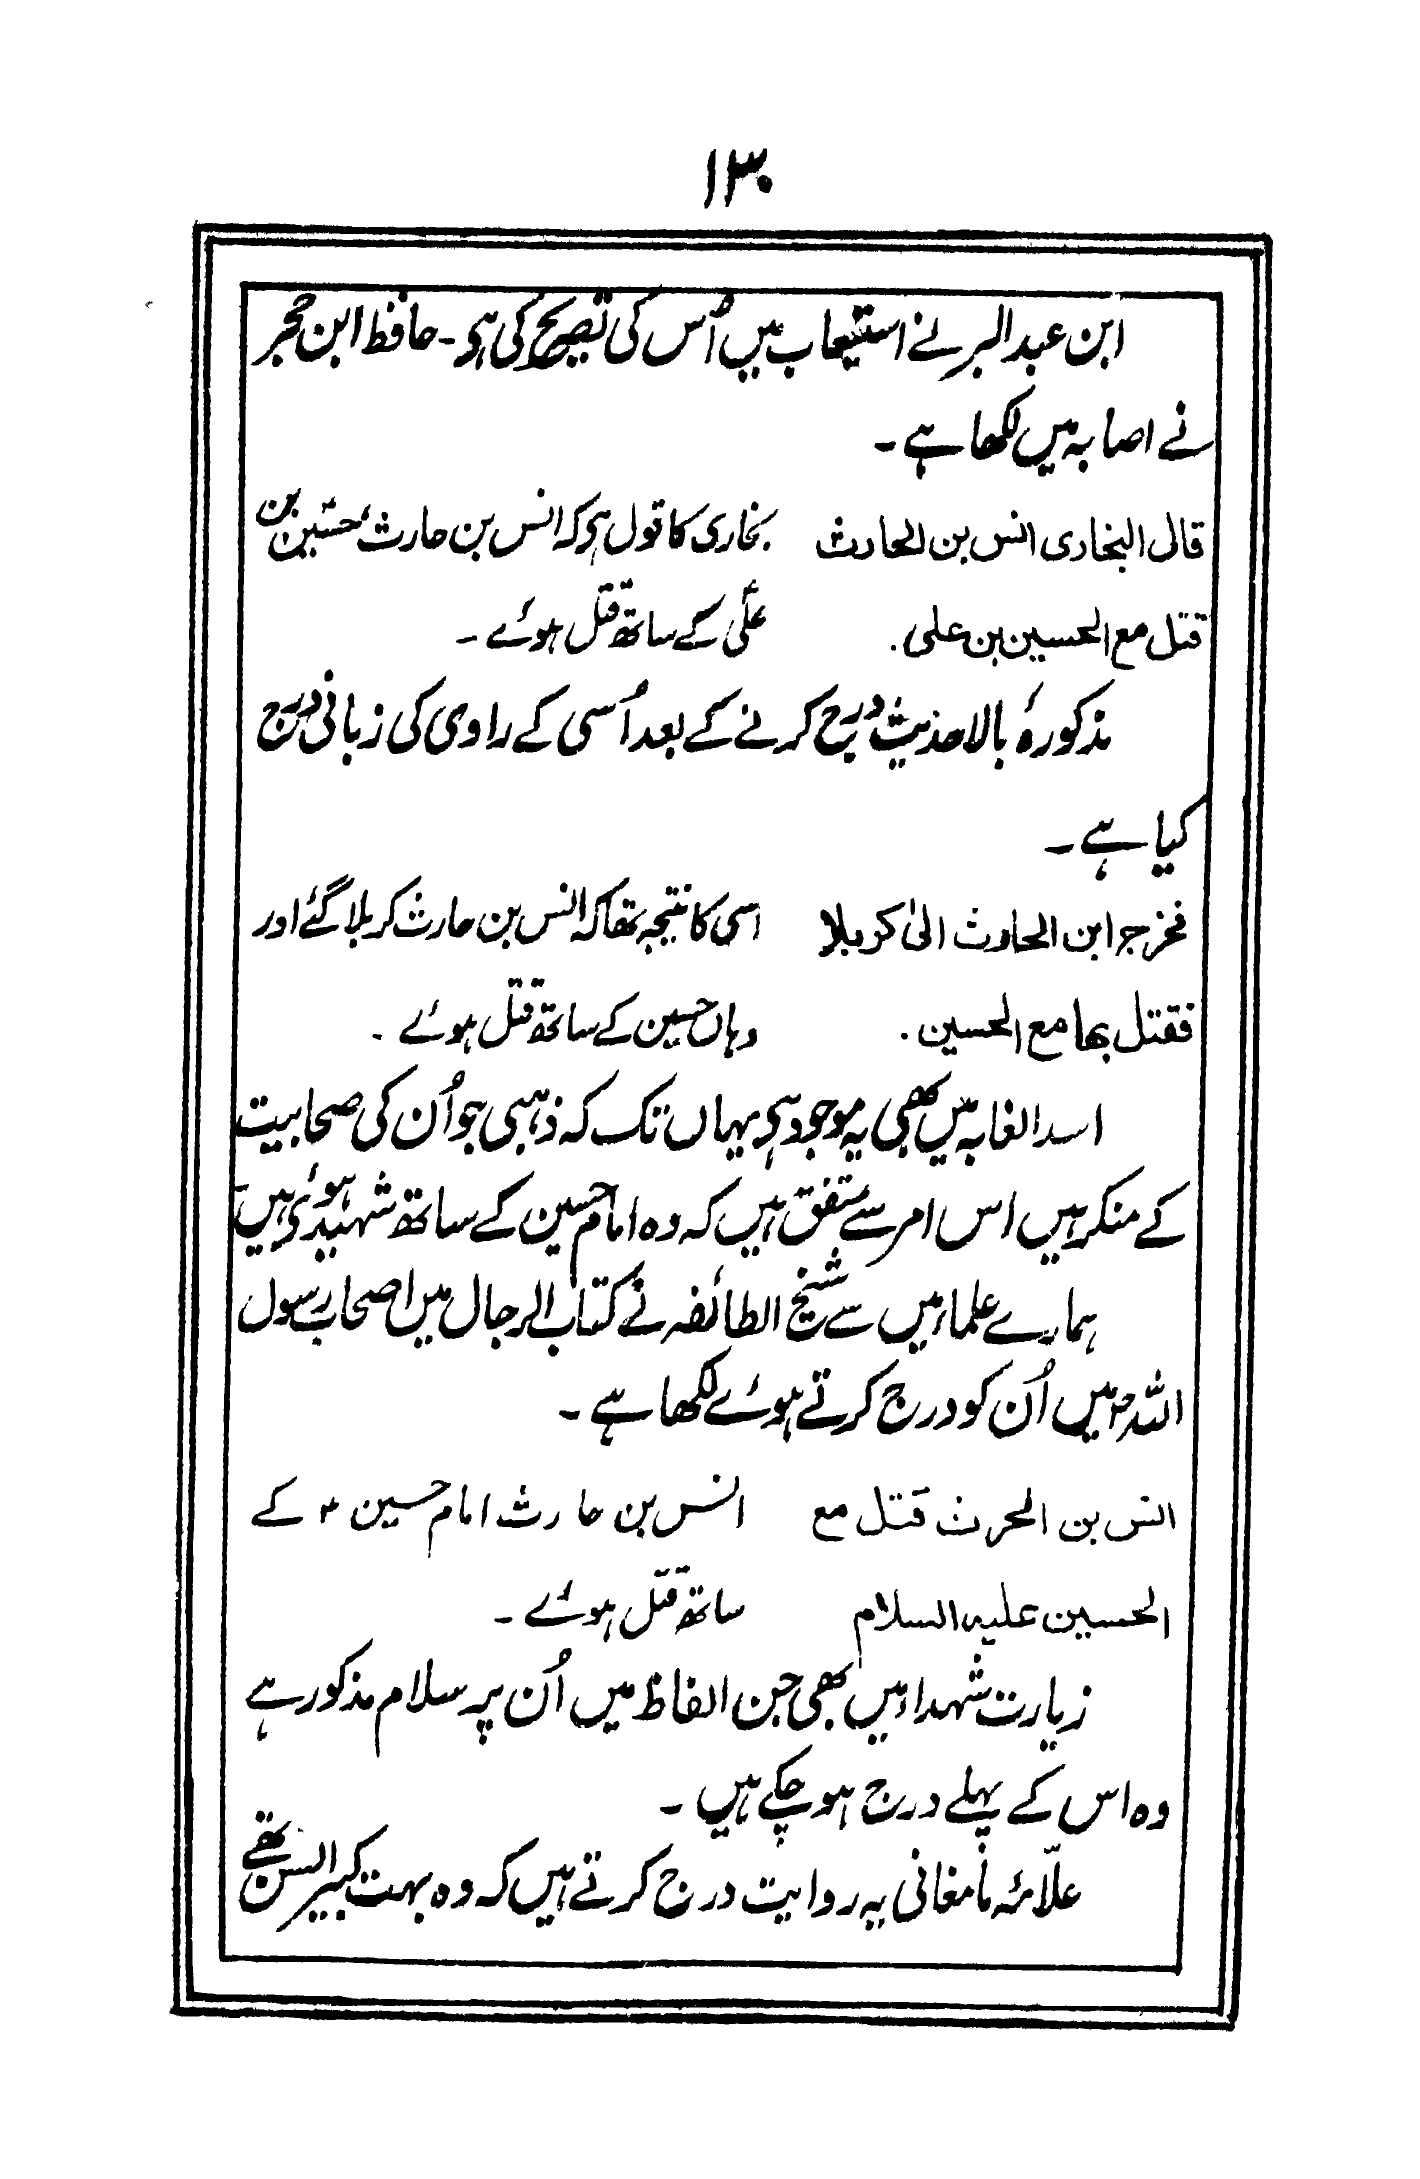 ۱۳۰
ابن عبدالبر نے استیعاب میں اُس کی تصریح کی ہی۔ حافظ ابن حجر
نے اصابہ میں لکھا ہے۔
قال البخاری انس بن الحارث بخاری کا قول ہی کہ انس بن حارث، حسین بن
قتل مع الحسین بن علی۔ علی کے ساتھ قتل ہوئے۔
مذکورۂ بالا حدیث درج کرنے کے بعد اُسی کے راوی کی زبانی درج
کیا ہے۔
فخرج ابن الحارث الیٰ کربلا اسی کا نتیجہ تھا کہ انس بن حارث کربلا گئے اور
فقتل بھا مع الحسین۔ وہاں حسین کے ساتھ قتل ہوئے۔
اسد الغابہ میں بھی یہ موجود ہی یہاں تک کہ ذہبی جو اُن کی صحابیت
کے منکر ہیں اس امر سے متفق ہیں کہ وہ امام حسین کے ساتھ شہید ہوئی ہیں
ہمارے علماء میں سے شیخ الطائفہ نے کتاب الرجال میں اصحاب رسول
اللہؐ میں اُن کو درج کرتے ہوئے لکھا ہے۔
انس بن الحرث قتل مع انس بن حارث امام حسینؑ کے
الحسین علیہ السلام ساتھ قتل ہوئے۔
زیارت شہداء میں بھی جن الفاظ میں اُن پر سلام مذکور ہے
وہ اس کے پہلے درج ہو چکے ہیں۔
علّامہ مامغانی یہ روایت درج کرتے ہیں کہ وہ بہت کبیر السن تھے